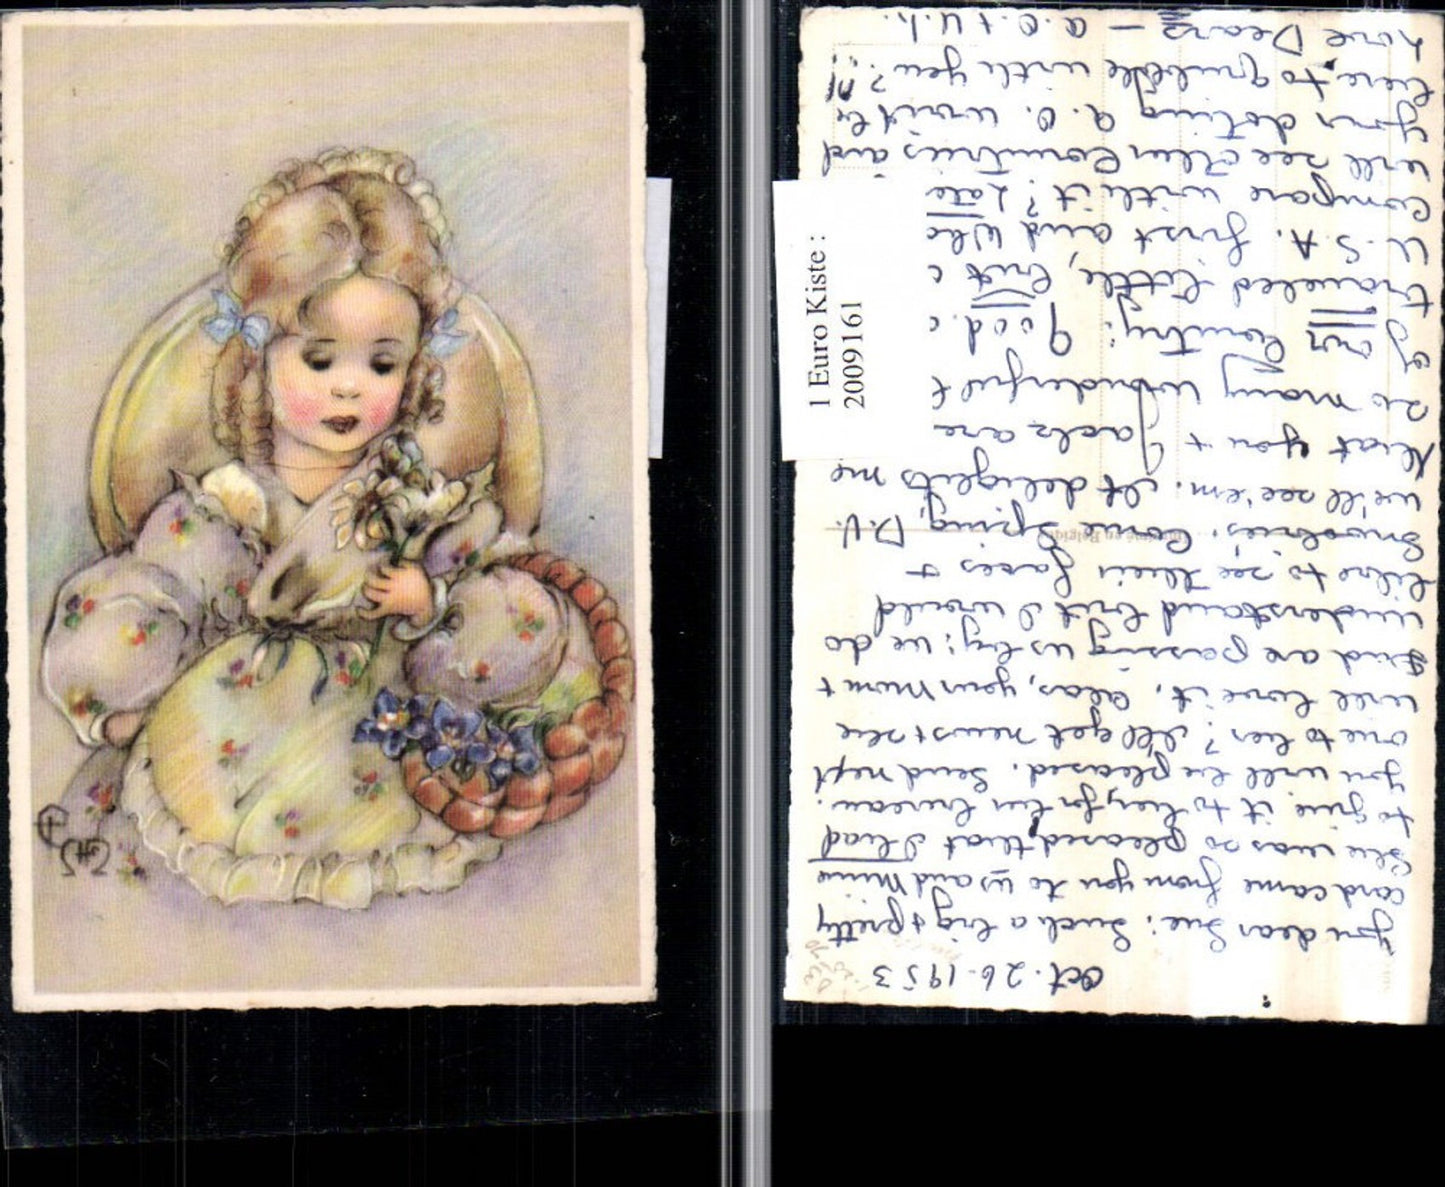 1 Euro Kiste :
2009161
Oct. 26. 1953
You dear Sue: Such a big & pretty
card came from you to us and Mimi
She was so pleased that I had
to give it to her for her bureau.
you will be pleased. Send next
one to her? I'll get news & she
will love it. Alas, your Mum &
Dad are passing us by; we do
understand but I would
like to see their faces &
Surveries. Come Spring, D.V.
we'll see 'em. It delights me
that you & Jack are
so many wonderful
of our Country; Good.
traveled little, but
U.S.A. first and who
compare with it? Late
will see other Countries and
your doting A.O. won't be
here to quibble with you?!!
Love Dears — A.O. & U.H.
en Belgique